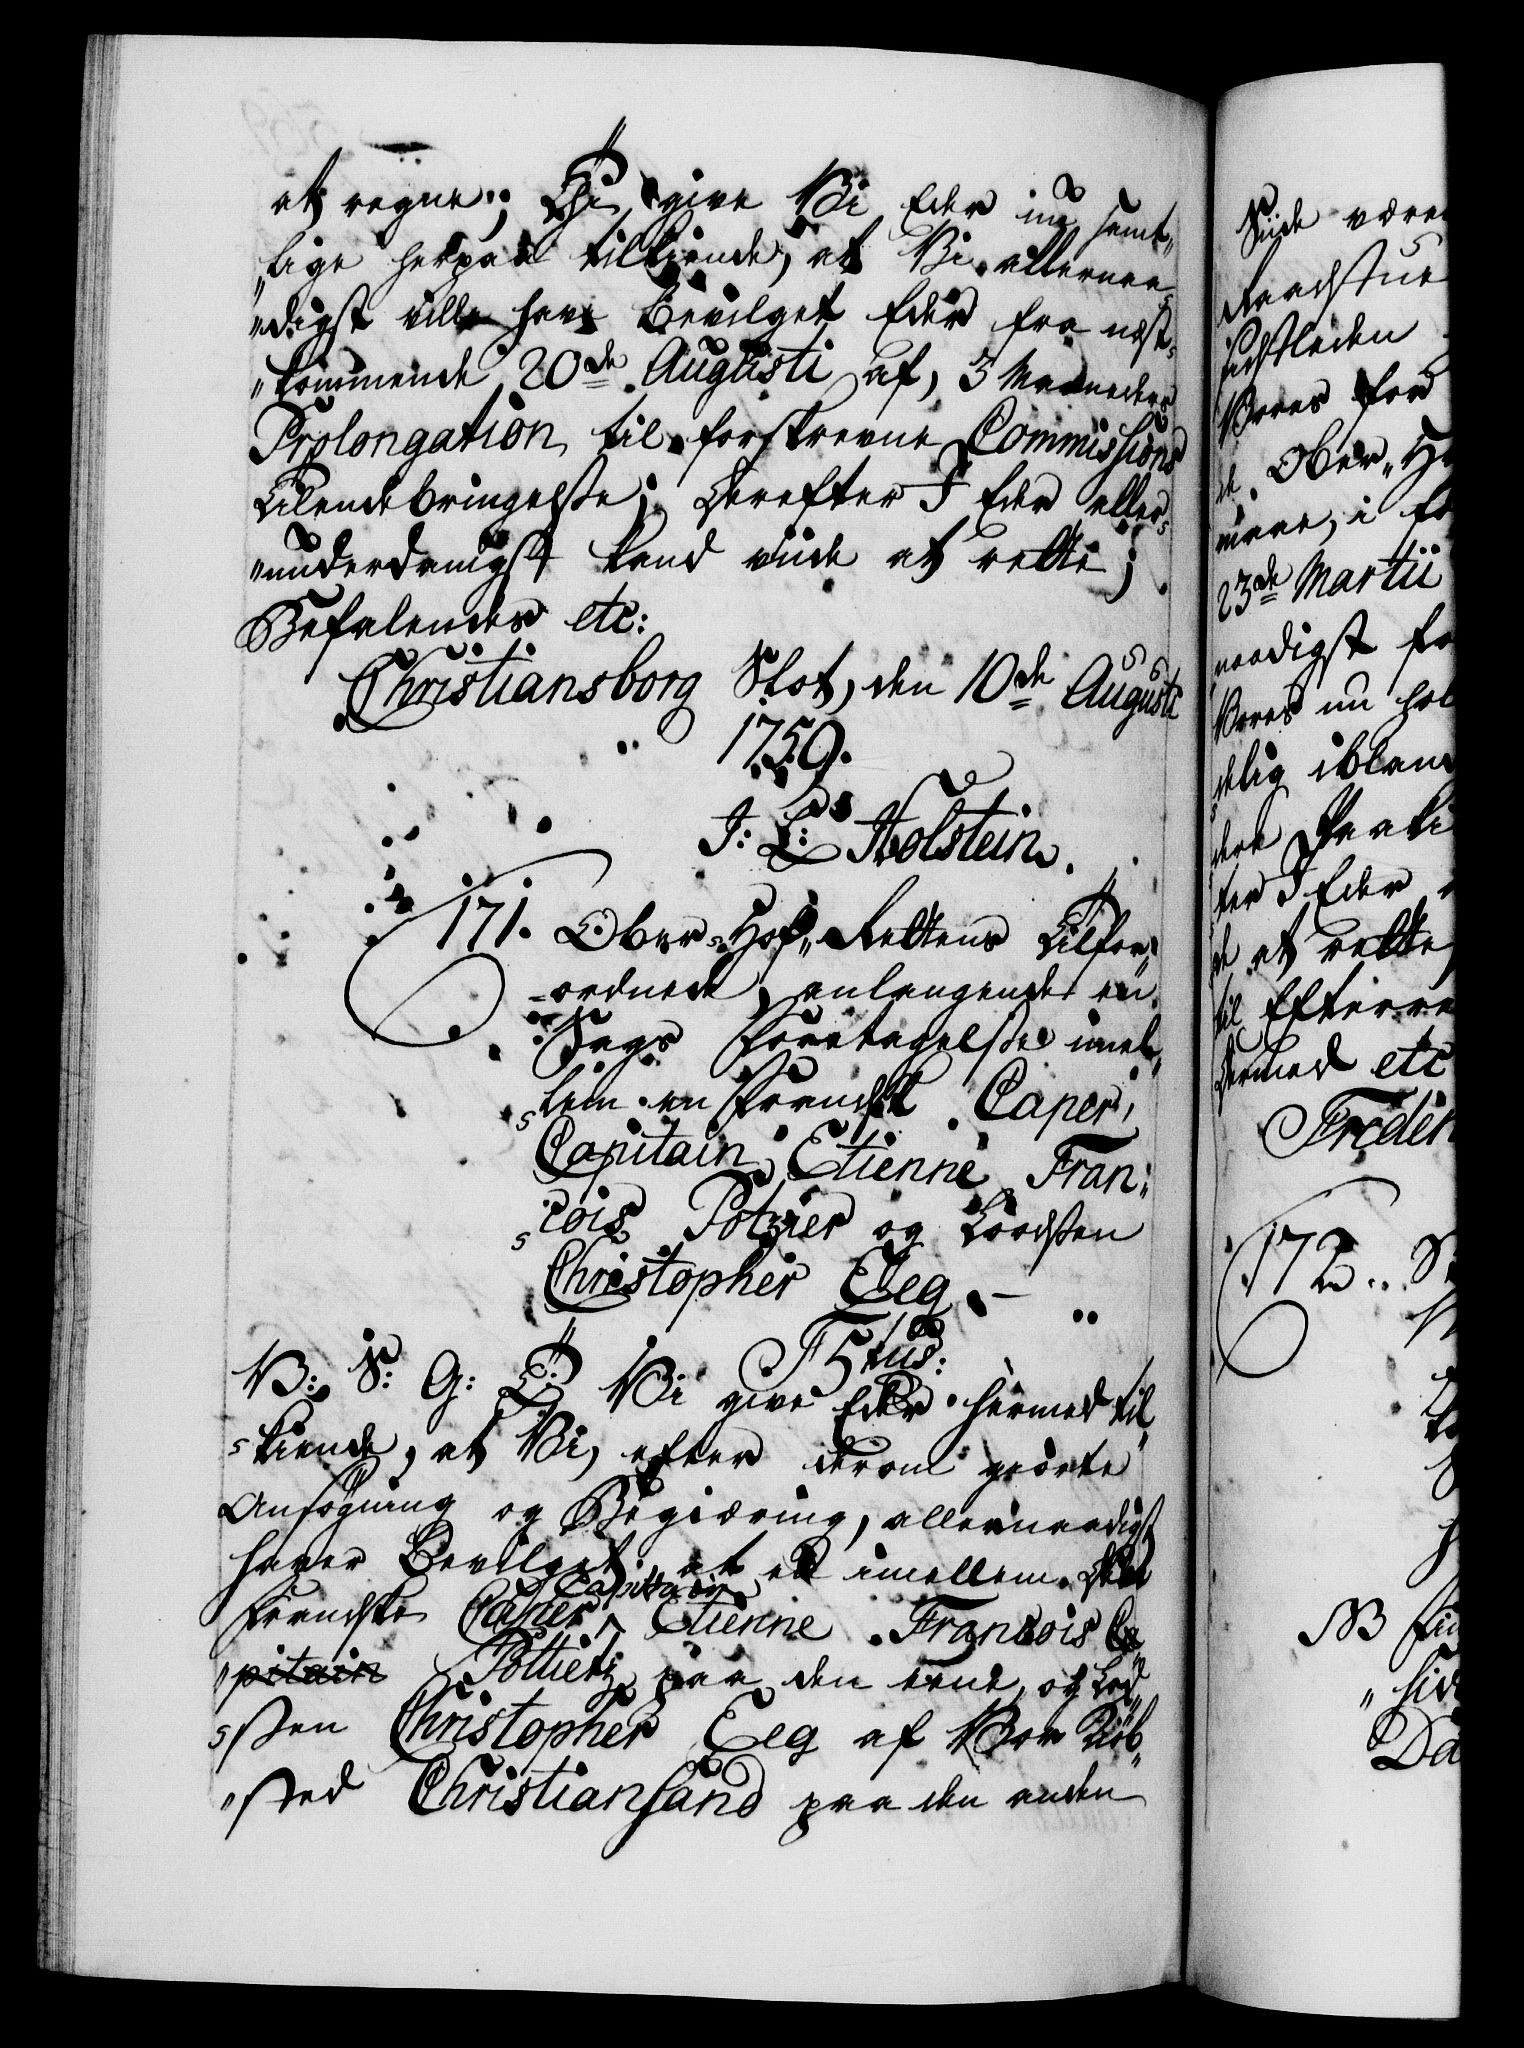 at regne; Thi give Vi Eder nu samt„
„lige herpaa tilkiende, at Vi allernaa„
„digst ville have bevilget Eder fra næst„
„kommende 20de Augusti af, 3 Maaneders
Prolongation til forskrevne Commissions
Tilendebringelsse; Derefter I Eder aller„
„underdanigst kand viide at rette;
Befalendes etc:
Christiansborg Slot, den 10de Augusti
1759.
J: L: Holstein.
171. Ober-Hof„Rettens Tilfor„
„ordnede, anlangende en
Sags Foretagelsse imel„
„lem en Fransk Caper,
Capitain, Etienne Fran:
„cois Potzier og Lodssen
Christopher Eeg. —
F5tus:
V: S: G: T: Vi give Eder hermed til„
„kiende, at Vi, efter derom giorte
Ansøgning og Begiæring, allernaadigst
haver bevilget, at en imellem den
Franske Caper ^ Capitain Etienne Francois Ca„
„pitain Pottier, paa den eene, og Lod„
„ssen Christopher Eeg af Vor Kiøb„
„sted Christiansand paa den anden
Siide være
Raadstue
sidstleden
Vores for
de Ober„H
naae, i fo
23de Martii
naadigst fo
Vores nu hol
delig iblan
dere Paaki
ter I Eder
de at rette
til Efterre
dermed etc
Frideri
172.. S